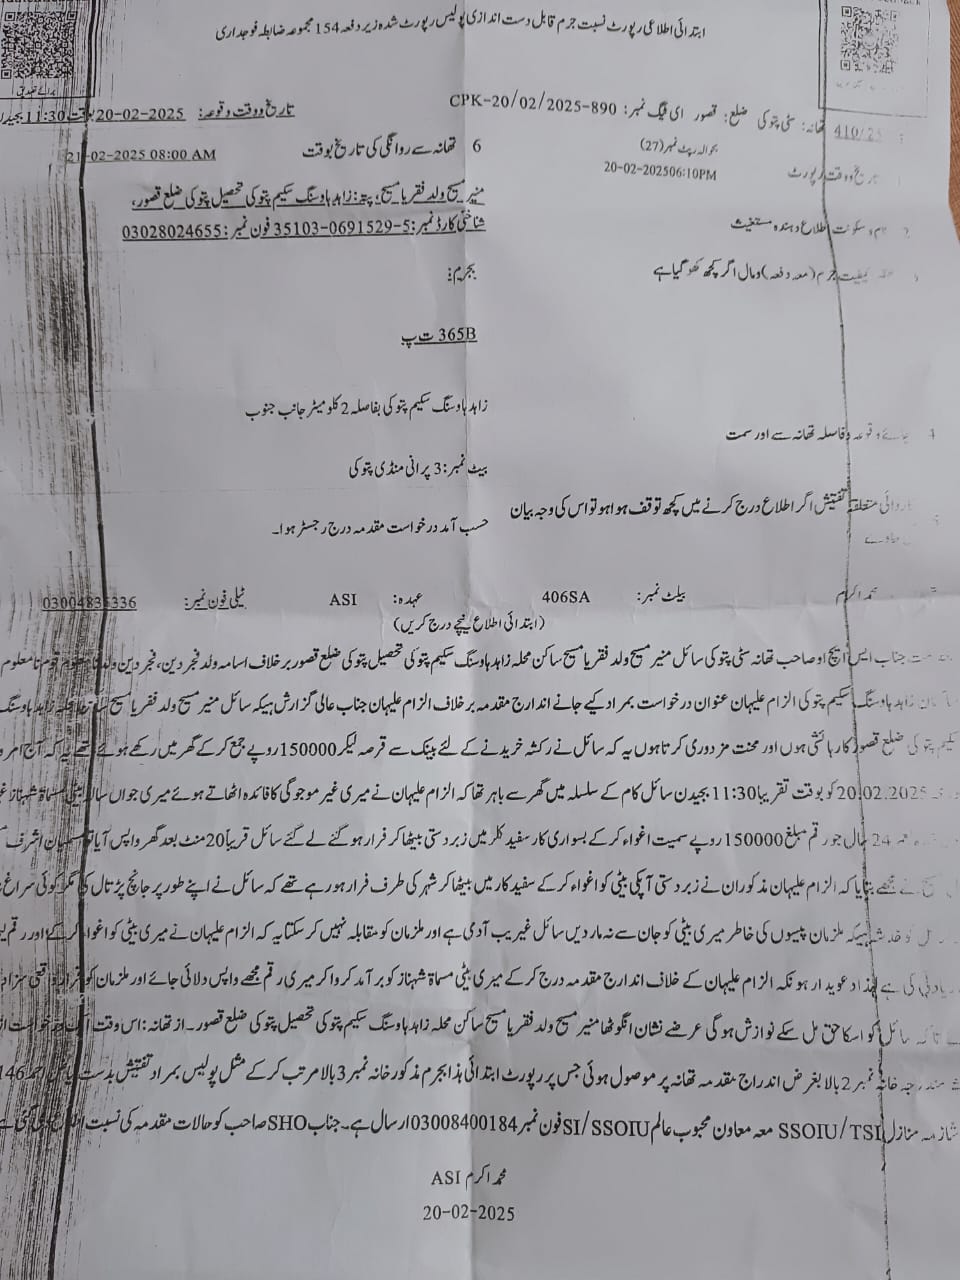 ابتدائی اطلاعی رپورٹ نسبت جرم قابل دست اندازی پولیس رپورٹ شدہ زیر دفعہ 154 مجموعہ ضابطہ فوجداری
برائے تصدیق
410/25 تھانہ: سٹی پتوکی ضلع: قصور ای ٹیگ نمبر: CPK-20/02/2025-890 تاریخ و وقت وقوعہ: 20-02-2025 بوقت 11:30 بجے دن
تاریخ و وقت رپورٹ بحوالہ رپٹ نمبر (27) 20-02-2025 06:10PM 6 تھانہ سے روانگی کی تاریخ بوقت 21-02-2025 08:00 AM
2 نام و سکونت اطلاع دہندہ مستغیث منیر مسیح ولد فقیر یا مسیح؛ پتہ: زاہد ہاوسنگ سکیم پتوکی تحصیل پتوکی ضلع قصور،
شناختی کارڈ نمبر: 35103-0691529-5 فون نمبر: 03028024655
کیفیت جرم (معہ دفعہ) و مال اگر کچھ کھو گیا ہے بجرم:
365B ت پ
4 جائے وقوعہ و فاصلہ تھانہ سے اور سمت زاہد ہاوسنگ سکیم پتوکی بفاصلہ 2 کلومیٹر جانب جنوب
بیٹ نمبر: 3 پرانی منڈی پتوکی
کاروائی متعلقہ تفتیش اگر اطلاع درج کرنے میں کچھ توقف ہوا ہو تو اس کی وجہ بیان
حسب آمد درخواست مقدمہ درج رجسٹر ہوا۔
محمد اکرم بیلٹ نمبر: 406SA عہدہ: ASI ٹیلی فون نمبر:
(ابتدائی اطلاع نیچے درج کریں)
جناب ایس ایچ او صاحب تھانہ سٹی پتوکی سائل منیر مسیح ولد فقیر یا مسیح ساکن محلہ زاہد ہاوسنگ سکیم پتوکی تحصیل پتوکی ضلع قصور بر خلاف اسامہ ولد فجر دین، فجر دین ولد نامعلوم قوم نامعلوم
زاہد ہاوسنگ سکیم پتوکی الزام علیہان عنوان درخواست بمراد کیے جانے اندارج مقدمہ بر خلاف الزام علیہان جناب عالی گزارش ہیکہ سائل منیر مسیح ولد فقیر یا مسیح ساکن محلہ زاہد ہاوسنگ
سکیم پتوکی ضلع قصور کا رہائشی ہوں اور محنت مزدوری کرتا ہوں یہ کہ سائل نے رکشہ خریدنے کے لئے بینک سے قرضہ لیکر 150000 روپے جمع کر کے گھر میں رکھے ہوئے تھے یہ کہ آج امر
20.02.2025 کو بوقت تقریبا 11:30 بجیدن سائل کام کے سلسلہ میں گھر سے باہر تھا کہ الزام علیہان نے میری غیر موجوگی کا فائدہ اٹھاتے ہوئے میری جواں سالہ بیٹی مسماۃ شہناز
24 سال جو رقم مبلغ 150000 روپے سمیت اغواء کر کے بسواری کار سفید کلر میں زبردستی بیٹھا کر فرار ہو گئے لے گئے سائل قریباً 20 منٹ بعد گھر واپس آیا تو مسمیان اشرف
نے مجھے بتایا کہ الزام علیہان مذکوران نے زبردستی آپکی بیٹی کو اغواء کر کے سفید کار میں بیٹھا کر شہر کی طرف فرار ہو رہے تھے کہ سائل نے اپنے طور پر جانچ پڑتال کی مگر کوئی سراغ
خدشہ ہیکہ ملزمان پیسوں کی خاطر میری بیٹی کو جان سے نہ مار دیں سائل غریب آدمی ہے اور ملزمان کو مقابلہ نہیں کر سکتا یہ کہ الزام علیہان نے میری بیٹی کو اغواء کر کے اور رقم
زیادتی کی ہے لہذا دعویدار ہونکہ الزام علیہان کے خلاف اندارج مقدمہ درج کر کے میری بیٹی مسماۃ شہناز کو برآمد کروا کر میری رقم مجھے واپس دلائی جائے اور ملزمان کو قرار واقعی سزا
تاکہ سائل کو اسکا حق مل سکے نوازش ہو گی عرضے نشان انگوٹھا منیر مسیح ولد فقیر یا مسیح ساکن محلہ زاہد ہاوسنگ سکیم پتوکی تحصیل پتوکی ضلع قصور۔ از تھانہ: اس وقت درخواست
مندرجہ خانہ نمبر 2 بالا بغرض اندراج مقدمہ تھانہ پر موصول ہوئی جس پر رپورٹ ابتدائی ہذا بجرم مذکور خانہ نمبر 3 بالا مرتب کر کے مثل پولیس بمراد تفتیش بدست احمد 146
منازل SSOIU/TSI معہ معاون محبوب عالم SI/SSOIU فون نمبر 03008400184 ارسال ہے۔ جناب SHO صاحب کو حالات مقدمہ کی نسبت اطلاع دی گئی ہے
محمد اکرم ASI
20-02-2025